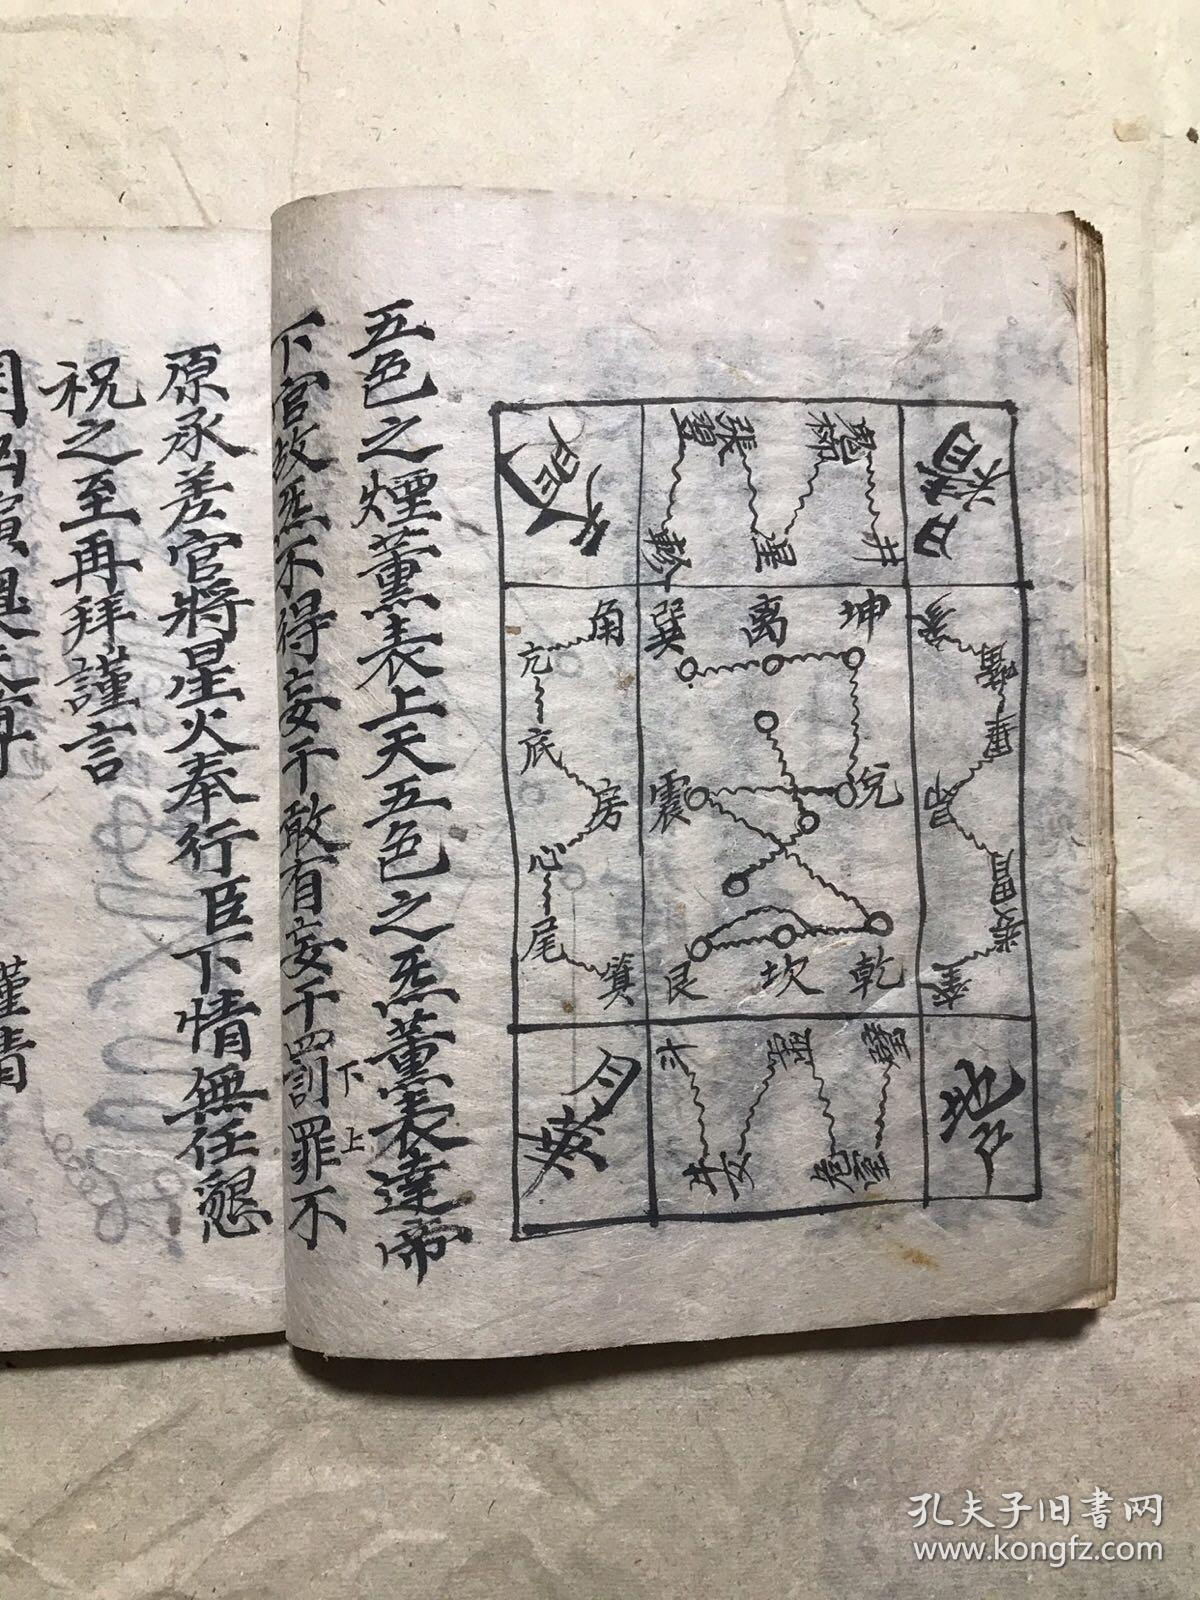 日精
鬼柳
井
張翼
星
軫
天門
坤
离
巽
兌
震
乾
坎
艮
角
亢
底
房
心
尾
箕
参
觜
畢
昴
胃
婁
奎
地户
壁
室
危
虛
女
牛
斗
月華
五色之煙薰表上天五色之炁薰表達帝
下官故炁不得妄干敢有妄干罰罪不
下
上
原承差官將星火奉行臣下情無任懇
祝之至再拜謹言
謹請
孔夫子旧书网
www.kongfz.com